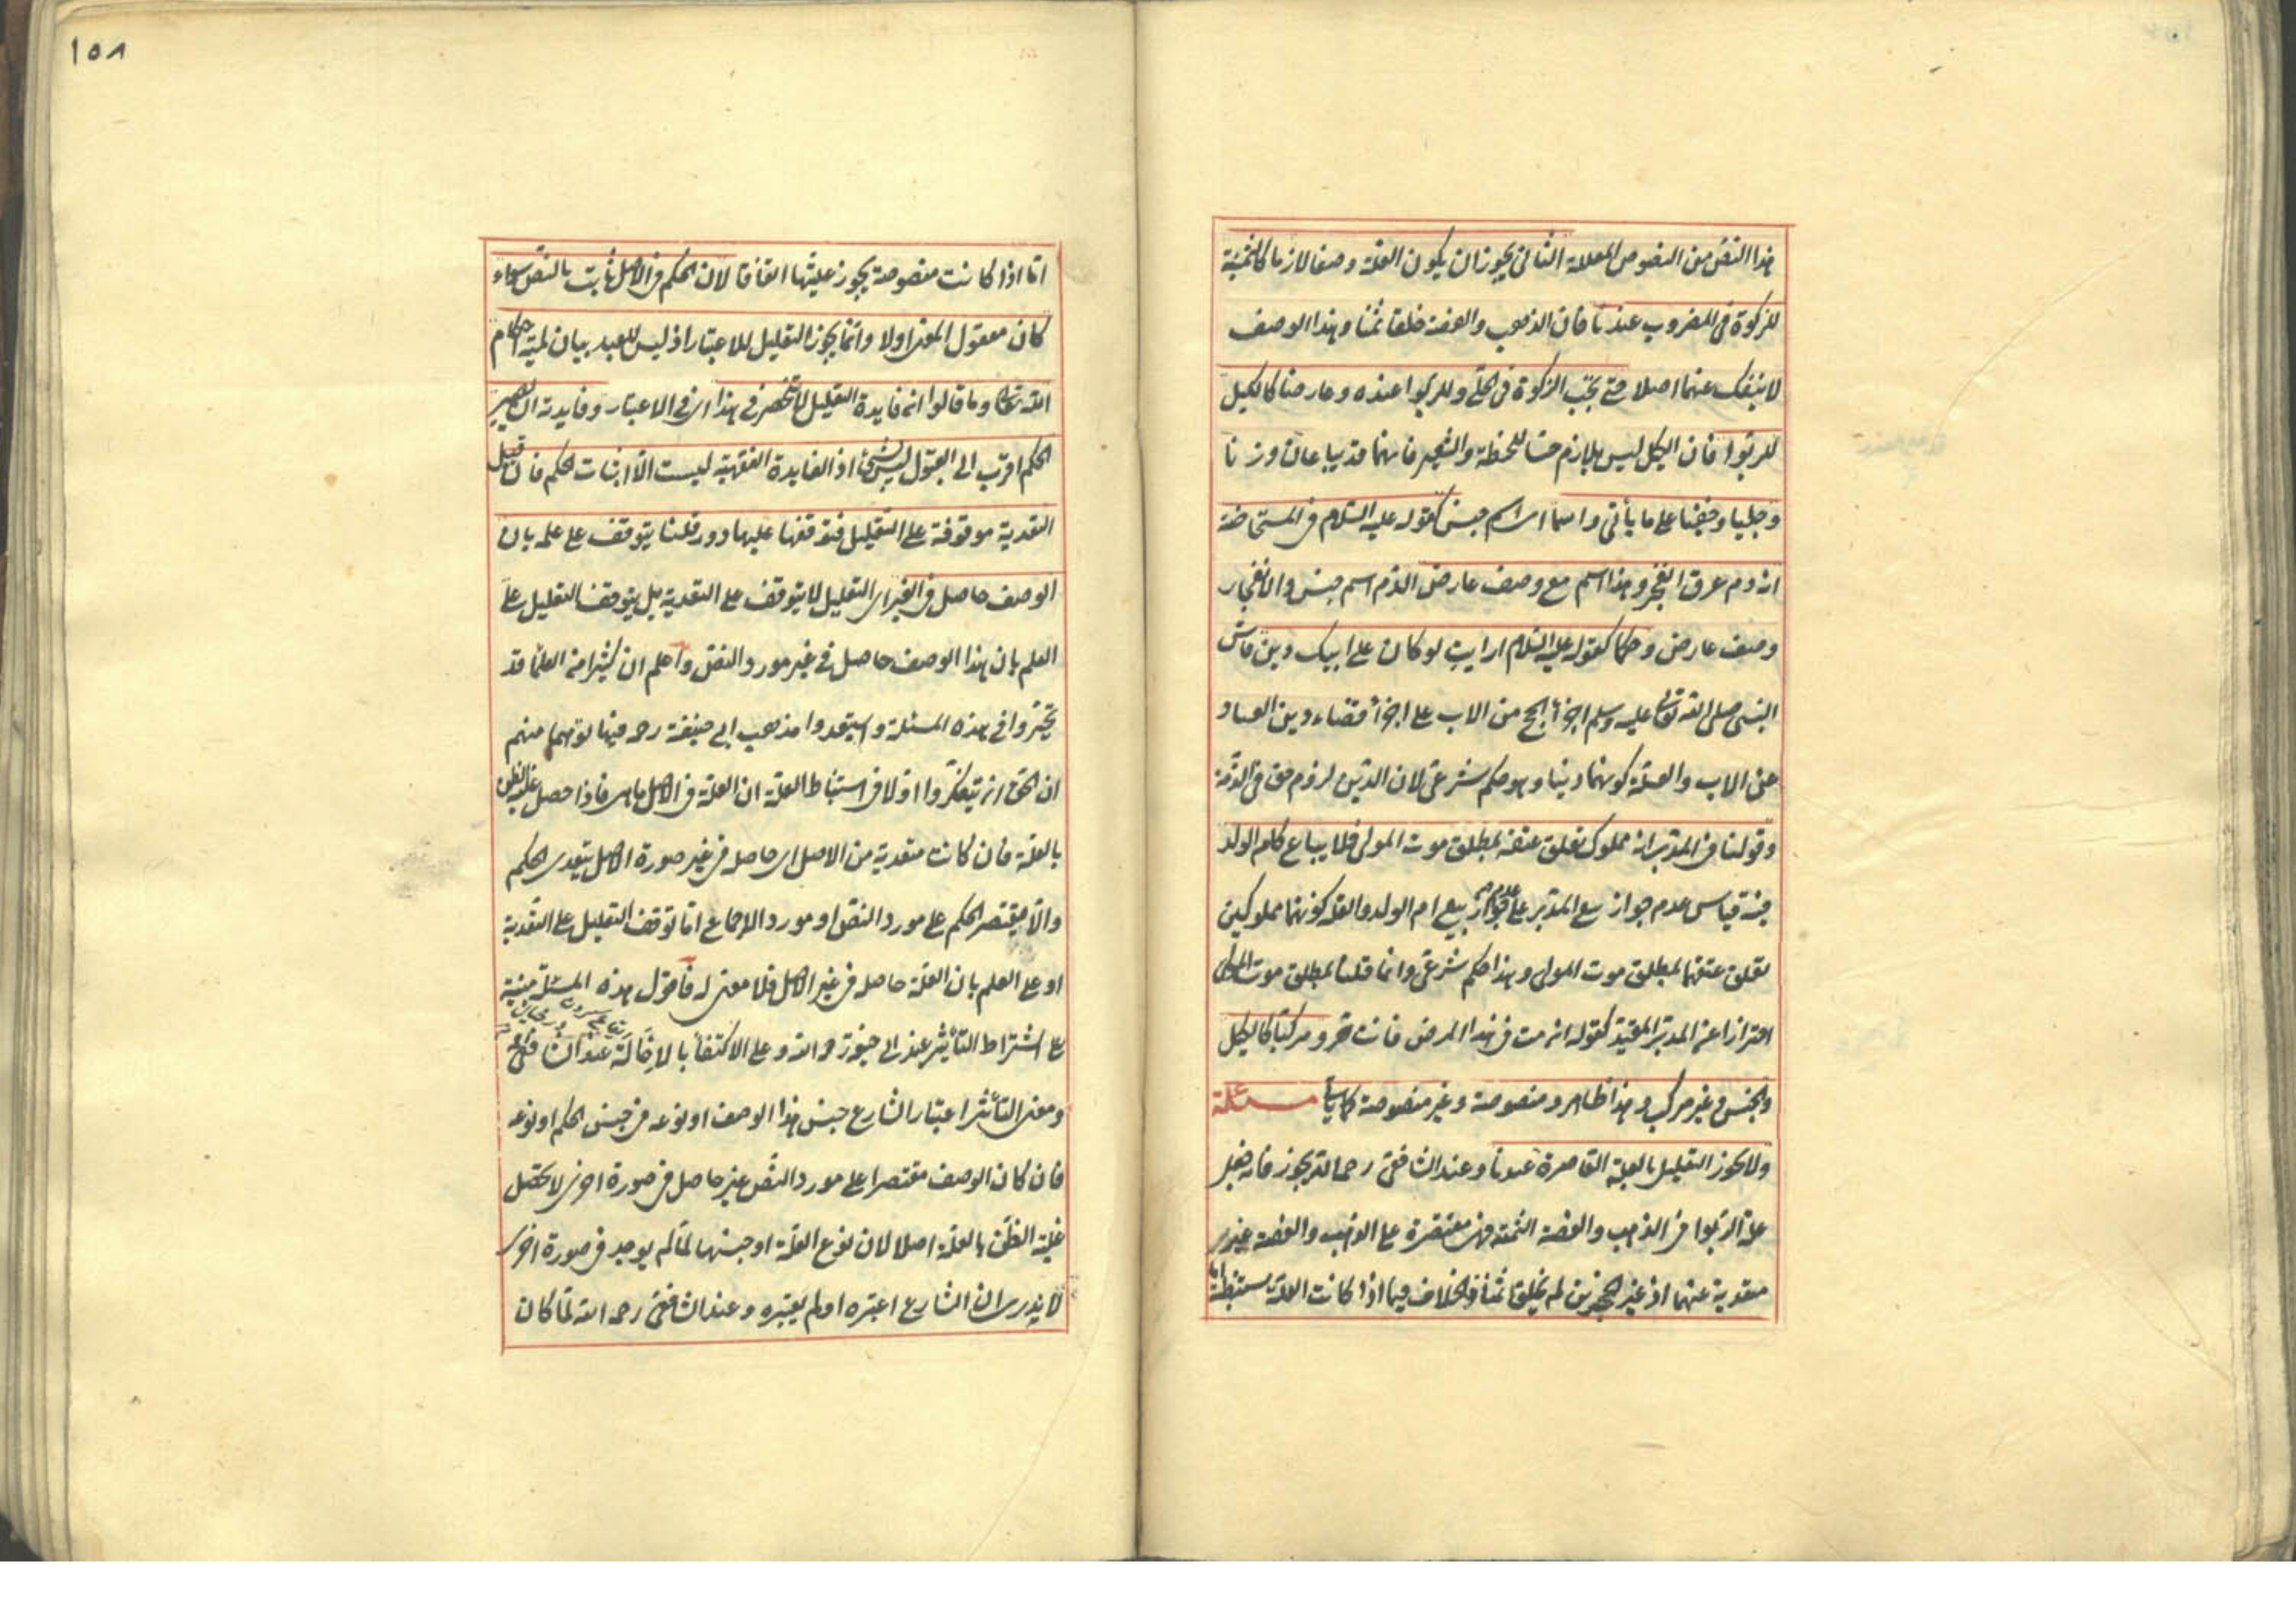 هذا النص من النصوص المعللة الثانى يجوز ان يكون العلة وصفا لازما كالثمنية
للزكوة فى المضروب عندنا فان الذهب والفضة خلقا ثمنا وهذا الوصف
لا ينفك عنهما اصلا حتى يجب الزكوة فى الحلى وللربوا عنده وعارضا كالكيل
للربوا فان الكيل ليس بلازم حسا للحنطة والشعير فانهما قد يباعان وزنا
وجليا وخفيا على ما يأتى واسما اى اسم جنس كقوله عليه السلام فى المستحاضة
انه دم عرق انفجر وهذا اسم مع وصف عارض الدم اسم جنس والانفجار
وصف عارض وحكما كقوله عليه السلام ارايت لو كان على ابيك دين قاس
النبى صلى الله تعالى عليه وسلم اجزأ الحج من الاب على اجزأ قضاء دين العباد
عن الاب والعلة كونهما دينا وهو حكم شرعى لان الدين لزوم حق فى الذمة
وقولنا فى المدبر انه مملوك تعلق عتقه بمطلق موت المولى فلا يباع كام الولد
فيه قياس عدم جواز بيع المدبر على عدم جواز بيع ام الولد والعلة كونهما مملوكين
تعلق عتقهما بمطلق موت المولى وهذا حكم شرعى وانما قلنا بمطلق موت المولى
احترازا عن المدبر المقيد كقوله ان مت فى هذا المرض فانت حر ومركبا كالكيل
والجنس وغير مركب وهذا ظاهر ومنصوصة وغير منصوصة كما سيأتى مسئلة
ولا يجوز التعليل بالعلة القاصرة عندنا وعند الشافعى رحمه الله يجوز فانه جعل
علة الربوا فى الذهب والفضة الثمنية فهى مقتصرة على الذهب والفضة غير
متعدية عنهما اذ غير الحجرين لم يخلق ثمنا والخلاف فيما اذا كانت العلة مستنبطة اما
١٥٨
اما اذا كانت منصوصة يجوز عليتها اتفاقا لان الحكم فى الاصل ثابت بالنص سواء
كان معقول المعنى اولا وانما يجوز التعليل للاعتبار اذ ليس للعبد بيان لمية احكام
الله تعالى وما قالوا ان فايدة التعليل لا تنحصر فى هذا اى فى الاعتبار وفايدته ان يصير
الحكم اقرب الى القبول ليس بشئ اذ الفايدة الفقهية ليست الا اثبات الحكم فان قيل
التعدية موقوفة على التعليل فتوقفها عليها دور قلنا يتوقف على علمه بان
الوصف حاصل فى الغير اى التعليل لا يتوقف على التعدية بل يتوقف التعليل على
العلم بان هذا الوصف حاصل فى غير مورد النص واعلم ان كثيرا من العلما قد
تحيروا فى هذه المسئلة واستبعدوا مذهب ابى حنيفة رحه فيها توهما منهم
ان الحق ان يتفكروا اولا فى استنباط العلة ان العلة فى الاصل ما هى فاذا حصل غلبة الظن
بالعلة فان كانت متعدية من الاصل اى حاصلة فى غير صورة الاصل يتعدى الحكم
والا يقتصر الحكم على مورد النص او مورد الاجماع اما توقف التعليل على التعدية
او على العلم بان العلة حاصلة فى غير الاصل فلا معنى له فاقول هذه المسئلة مبنية
على اشتراط التأثير عند ابى حنيفة رحمه الله وعلى الاكتفأ بالاخالة عند الشافعى
ومعنى التأثير اعتبار الشارع جنس هذا الوصف او نوعه فى جنس الحكم او نوعه
فان كان الوصف مقتصرا على مورد النص غير حاصل فى صورة اخرى لا يحصل
غلبة الظن بالعلة اصلا لان نوع العلة او جنسها لما لم يوجد فى صورة اخرى
لا يدرى ان الشارع اعتبره او لم يعتبره وعند الشافعى رحمه الله لما كان